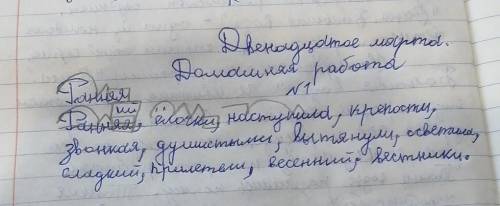 Двенадцатое марта.
Домашняя работа
№1
Ранняя
Ранняя, ёлочки, наступила, крепости,
звонкая, душистыми, вытянули, осветила,
сладкий, прилетели, весенний, вестники.